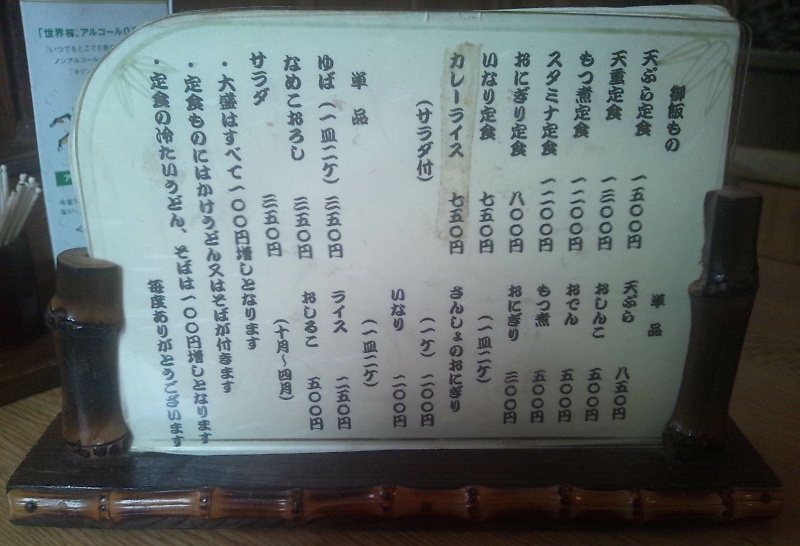 御飯もの
天ぷら定食 一五〇〇円
天重定食 一三〇〇円
もつ煮定食 一一〇〇円
スタミナ定食 一一〇〇円
おにぎり定食 八〇〇円
いなり定食 七五〇円
カレーライス 七五〇円
(サラダ付)
単品
ゆば(一皿二ケ) 三五〇円
なめこおろし 三五〇円
サラダ 三五〇円
単品
天ぷら 八五〇円
おしんこ 五〇〇円
おでん 五〇〇円
もつ煮 五〇〇円
おにぎり 三〇〇円
(一皿二ケ)
さんしょのおにぎり
(一ケ) 二〇〇円
いなり 二〇〇円
(一皿二ケ)
ライス 二五〇円
おしるこ 五〇〇円
(十月～四月)
・大盛はすべて一〇〇円増しとなります
・定食ものにはかけうどん又はそばが付きます
・定食の冷たいうどん、そばは一〇〇円増しとなります
毎度ありがとうございます
「世界初、アルコール0.
「いつでもどこでも
ノンアルコール
「キリン